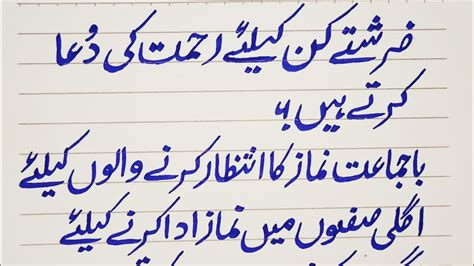 فرشتے کن کیلئے رحمت کی دُعا
کرتے ہیں؟
باجماعت نماز کا انتظار کرنے والوں کیلئے
اگلی صفوں میں نماز ادا کرنے کیلئے